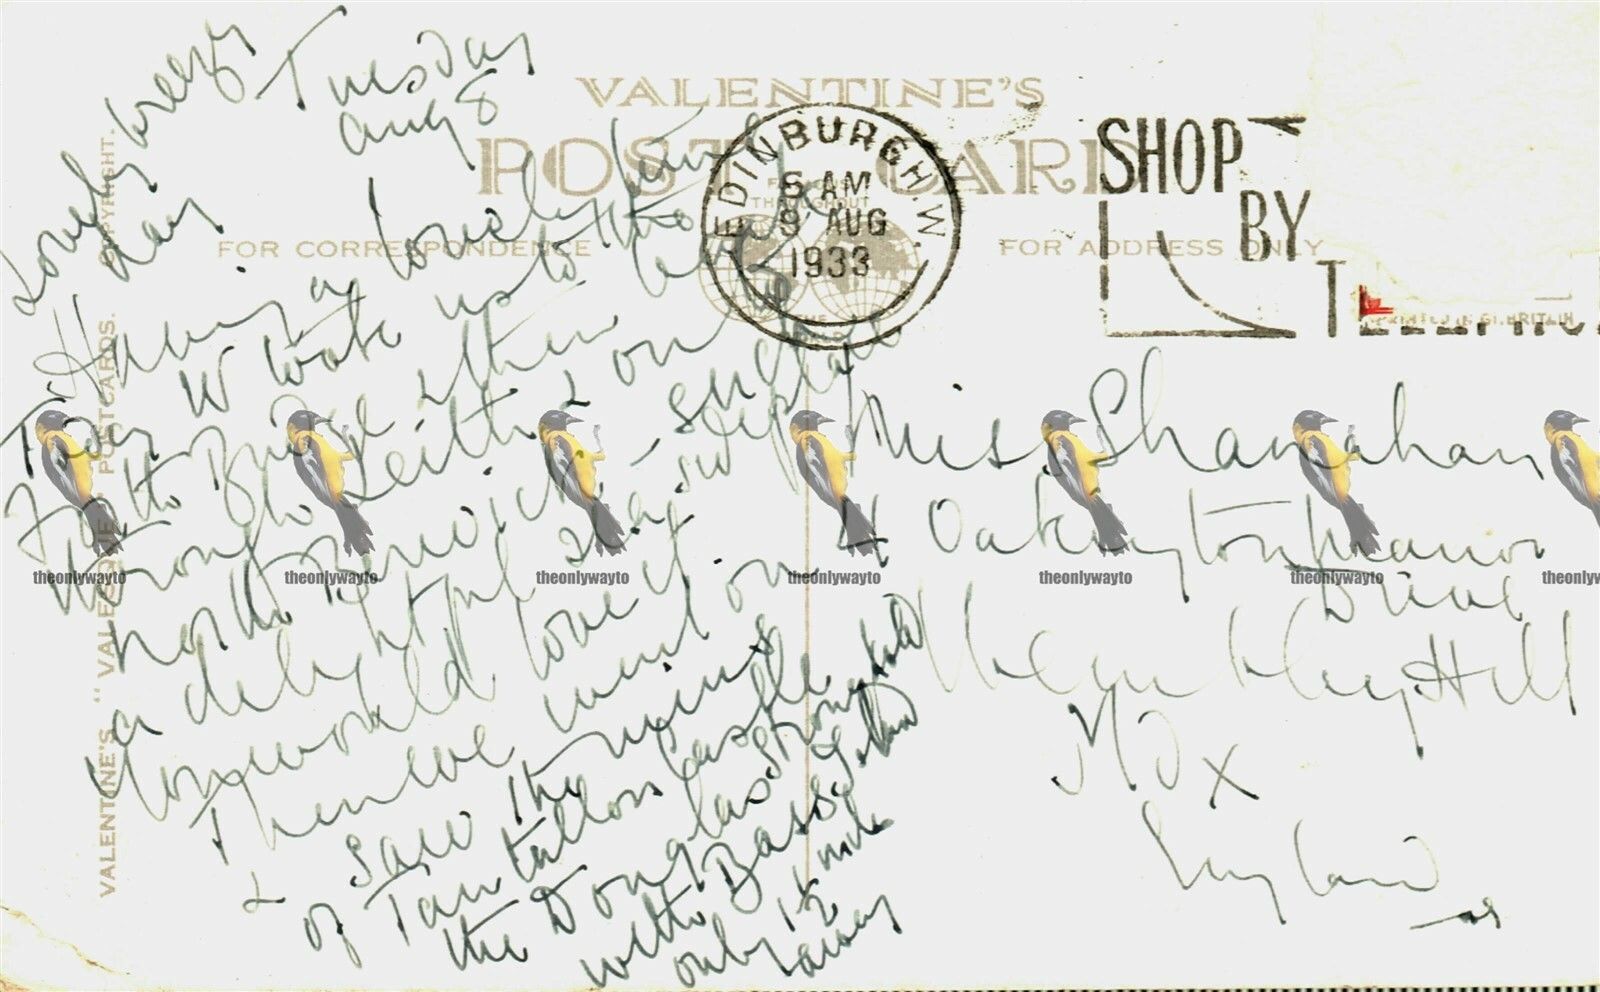 Lovely breezy
day
Tuesday
Aug 8
Having a lovely time
Today W took us to the
Forth Bridge & then back
through Leith & on to
North Berwick - such
a delightful sea-side place
You would love it.
Then we went on
& saw the ruins
of Tantallon Castle
the Douglas stronghold
with Bass Island
only 1½ mile
away
VALENTINE'S
POST CARD
FAMOUS
THROUGHOUT
THE
WORLD
FOR CORRESPONDENCE
FOR ADDRESS ONLY
PRINTED IN GT. BRITAIN
EDINBURGH.W.
5 AM
9 AUG
1933
SHOP
BY
Miss Shanahan
4 Oakington Manor
Drive
Wembley Hill
Mdx
England
VALENTINE'S "VALESQUE" POSTCARDS. COPYRIGHT.
theonlywayto theonlywayto theonlywayto theonlywayto theonlywayto theonlywayto theonlyw